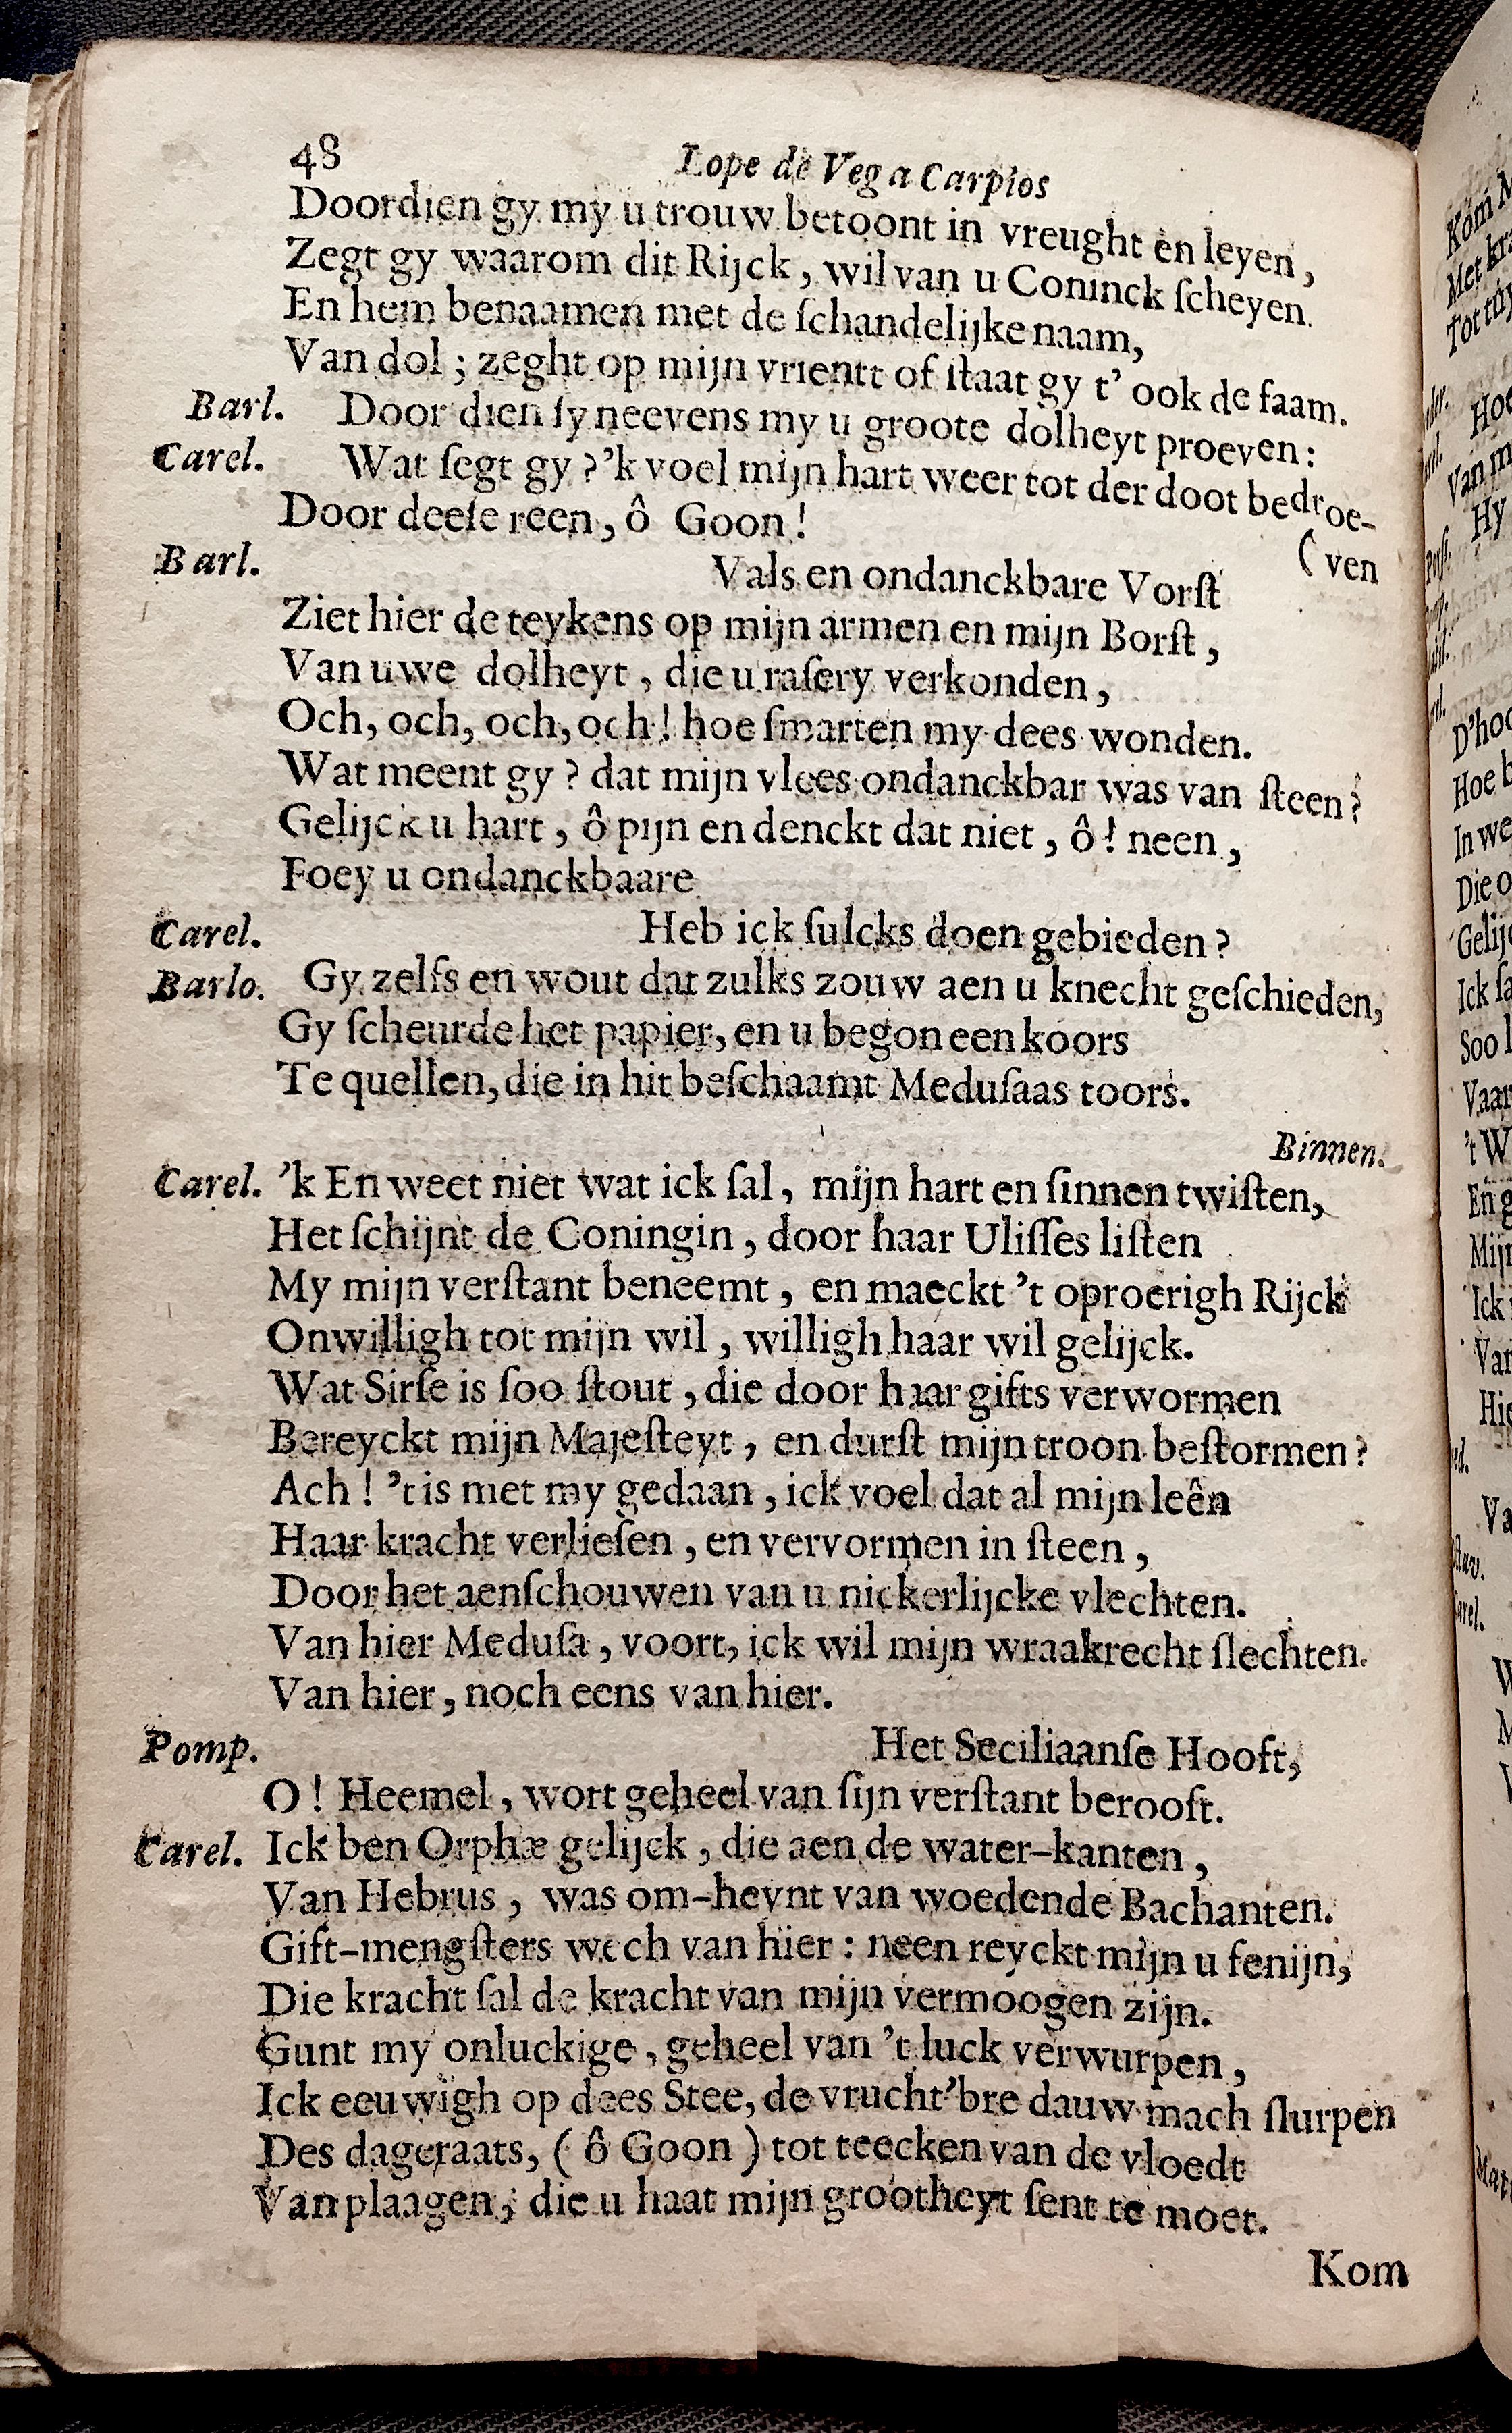 48 Lope de Vega Carpios
Doordien gy my u trouw betoont in vreught en leyen,
Zegt gy waarom dit Rijck, wil van u Coninck ſcheyen.
En hem benaamen met de ſchandelijke naam,
Van dol; zeght op mijn vrientt of ſtaat gy t' ook de faam.
Barl. Door dien ſy neevens my u groote dolheyt proeven:
Carel. Wat ſegt gy?'k voel mijn hart weer tot der doot bedroe-
Door deeſe reen, ô Goon! (ven
Barl. Vals en ondanckbare Vorſt
Ziet hier de teykens op mijn armen en mijn Borſt,
Van uwe dolheyt, die u raſery verkonden,
Och, och, och, och! hoe ſmarten my dees wonden.
Wat meent gy? dat mijn vlees ondanckbar was van ſteen?
Gelijck u hart, ô pijn en denckt dat niet, ô! neen,
Foey u ondanckbaare
Carel. Heb ick ſulcks doen gebieden?
Barlo. Gy zelfs en wout dat zulks zouw aen u knecht geſchieden,
Gy ſcheurde het papier, en u begon een koors
Te quellen, die in hit beſchaamt Meduſaas toors.
Binnen.
Carel. 'k En weet niet wat ick ſal, mijn hart en ſinnen twiſten,
Het ſchijnt de Coningin, door haar Uliſſes liſten
My mijn verſtant beneemt, en maeckt 't oproerigh Rijck
Onwilligh tot mijn wil, willigh haar wil gelijck.
Wat Sirſe is ſoo ſtout, die door haar gifts verwormen
Bereyckt mijn Majeſteyt, en durſt mijn troon beſtormen?
Ach! 't is met my gedaan, ick voel dat al mijn leên
Haar kracht verlieſen, en vervormen in ſteen,
Door het aenſchouwen van u nickerlijcke vlechten.
Van hier Meduſa, voort, ick wil mijn wraakrecht ſlechten.
Van hier, noch eens van hier.
Pomp. Het Seciliaanſe Hooft,
O! Heemel, wort geheel van ſijn verſtant berooft.
Carel. Ick ben Orphæ gelijck, die aen de water-kanten,
Van Hebrus, was om-heynt van woedende Bachanten.
Gift-mengſters wech van hier: neen reyckt mijn u fenijn,
Die kracht ſal de kracht van mijn vermoogen zijn.
Gunt my onluckige, geheel van 't luck verwurpen,
Ick eeuwigh op dees Stee, de vrucht'bre dauw mach ſlurpen
Des dageraats, (ô Goon) tot teecken van de vloedt
Van plaagen, die u haat mijn grootheyt ſent te moet.
Kom